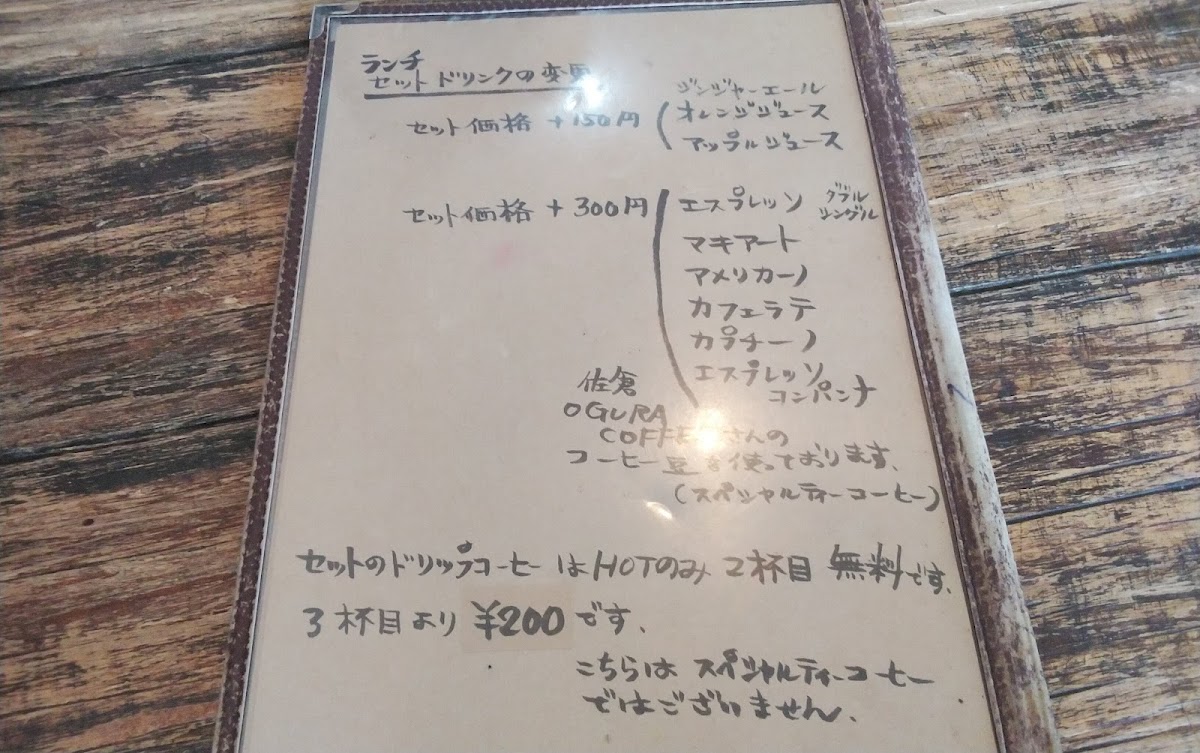 ランチ
セットドリンクの変更
セット価格 +150円
ジンジャーエール
オレンジジュース
アップルジュース
セット価格 +300円
エスプレッソ ダブル シングル
マキアート
アメリカーノ
カフェラテ
カプチーノ
エスプレッソ
コンパンナ
佐倉
OGURA
COFFEEさんの
コーヒー豆を使っております、
(スペシャルティーコーヒー)
セットのドリップコーヒーはHOTのみ 2杯目 無料です、
3杯目より ¥200 です、
こちらは スペシャルティーコーヒー
ではございません、